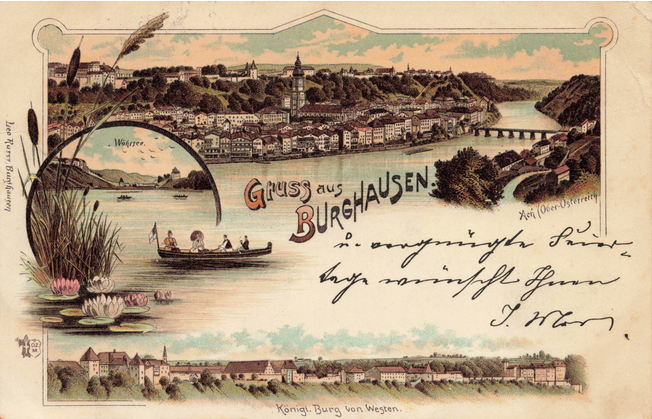 Wöhrsee.
Gruss aus
Burghausen.
Ach (Ober-Österreich
u. vergnügte Feier-
tage wünscht Ihnen
J.
Königl. Burg von Westen.
Leo Russy, Burghausen